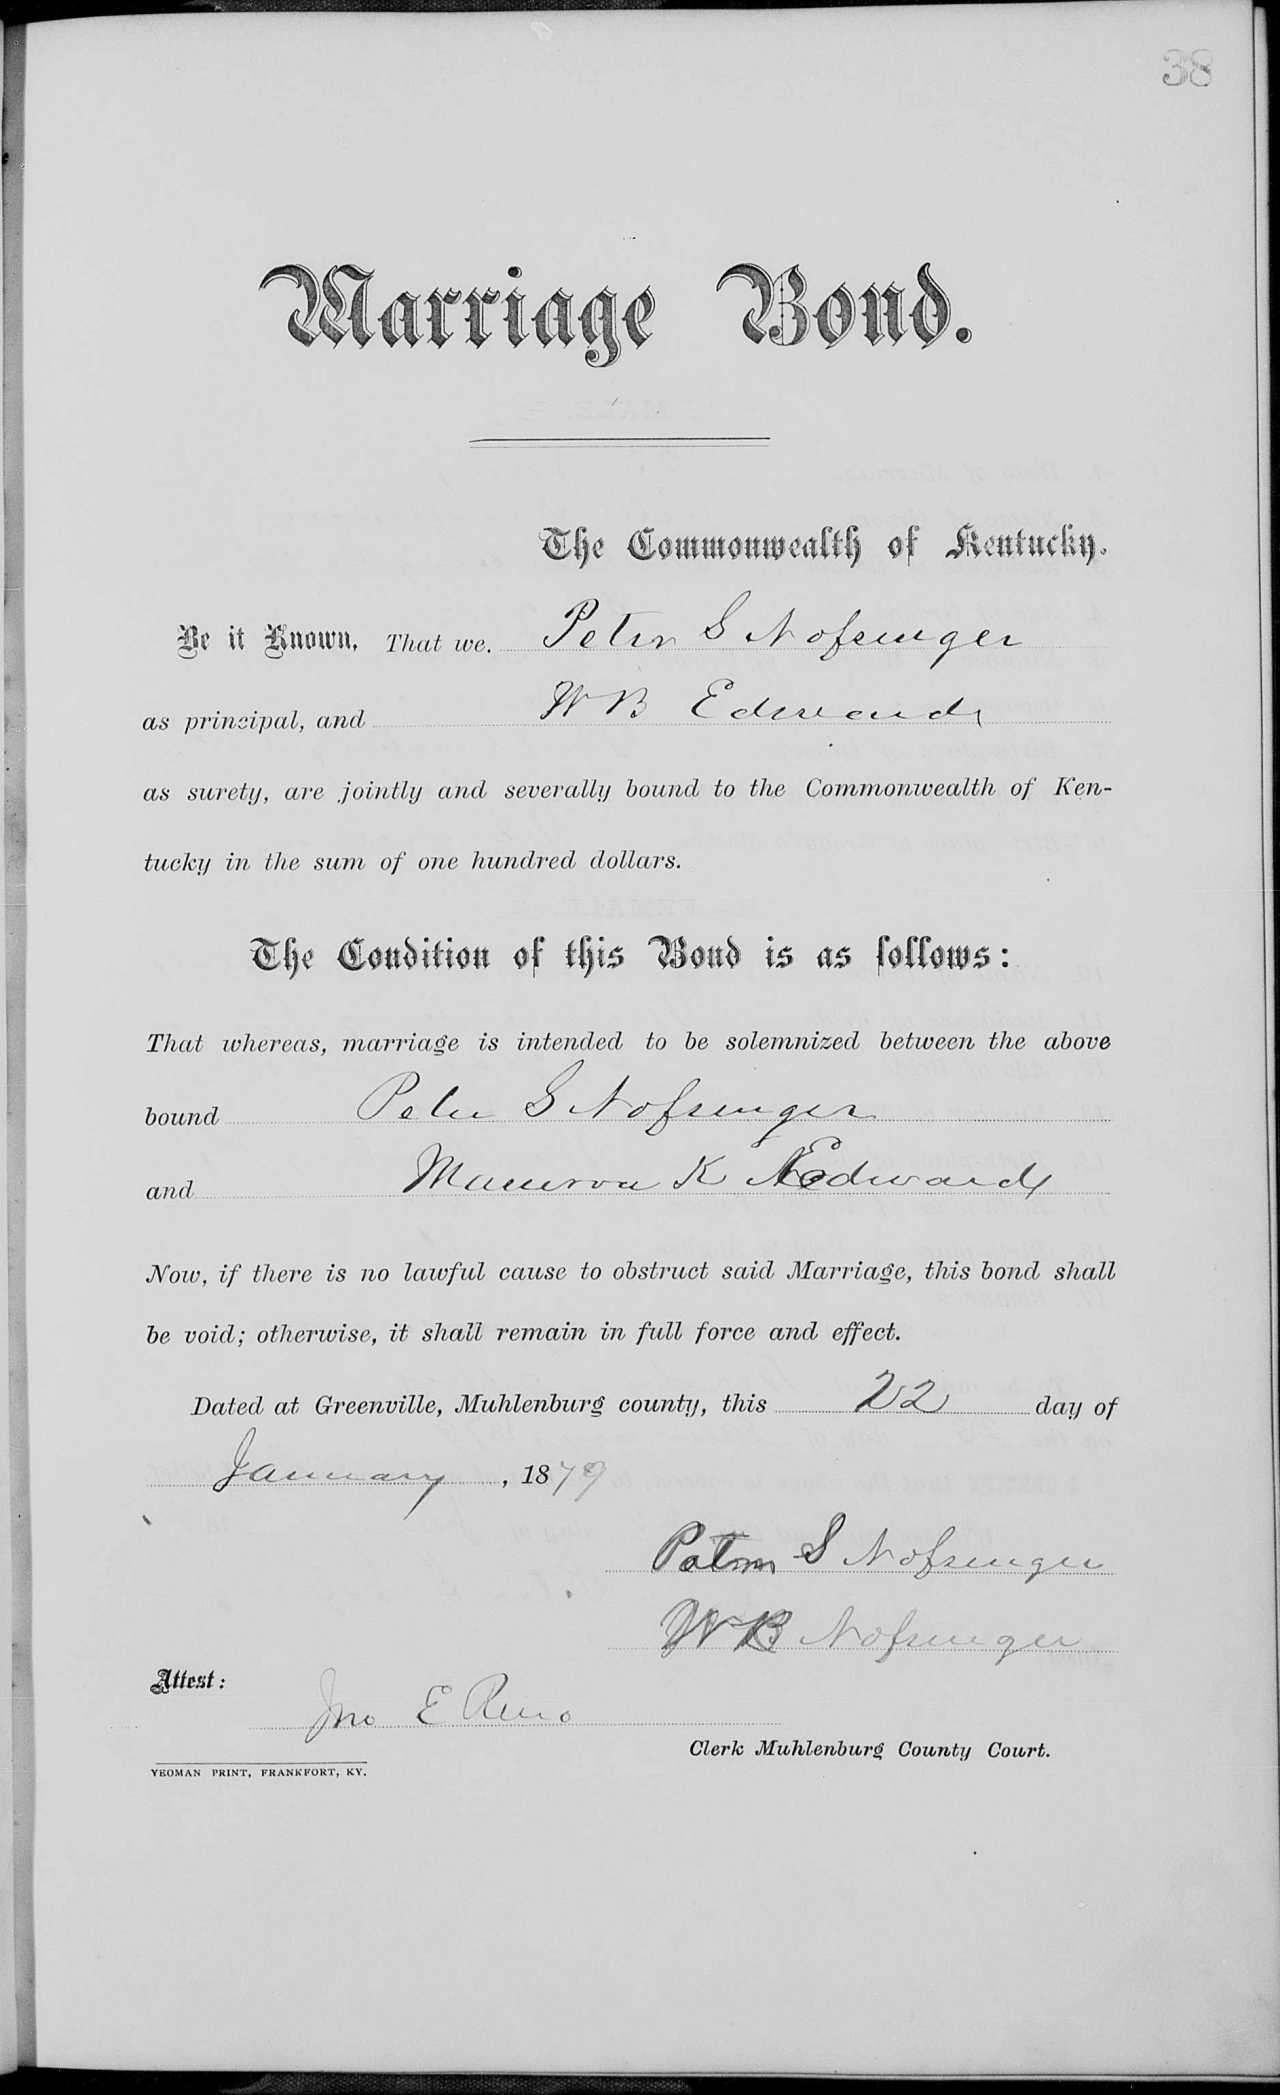 38
Marriage Bond.
The Commonwealth of Kentucky.
Be it Known, That we. Peter S Nofsinger
as principal, and W B Edwards
as surety, are jointly and severally bound to the Commonwealth of Ken-
tucky in the sum of one hundred dollars.
The Condition of this Bond is as follows:
That whereas, marriage is intended to be solemnized between the above
bound Peter S Nofsinger
and Manerva K Edwards
Now, if there is no lawful cause to obstruct said Marriage, this bond shall
be void; otherwise, it shall remain in full force and effect.
Dated at Greenville, Muhlenburg county, this 22 day of
January, 1879
Peter S Nofsinger
W B Nofsinger
Attest:
Jno E Reno
Clerk Muhlenburg County Court.
YEOMAN PRINT, FRANKFORT, KY.